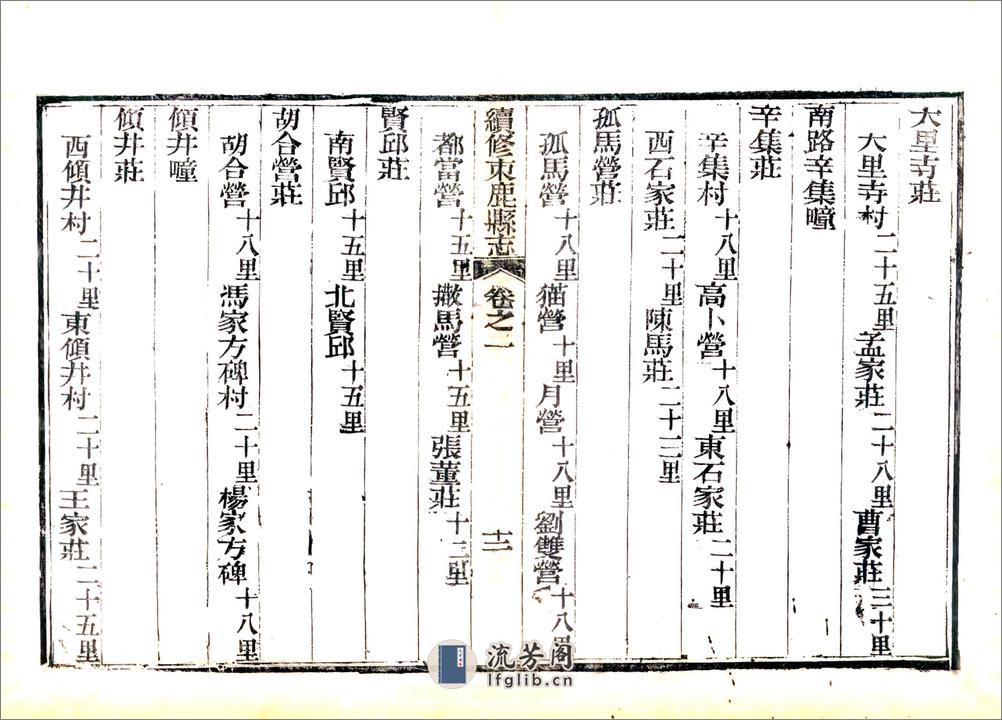 大里寺莊
大里寺村二十五里孟家莊二十八里曹家莊三十里
南路辛集疃
辛集莊
辛集村十八里高卜營十八里東石家莊二十里
西石家莊二十里陳馬莊二十三里
孤馬營莊
孤馬營十八里猫營十里月營十八里劉雙營十八里
續修束鹿縣志 卷之一 十二
都富營十五里撒馬營十五里張董莊十三里
賢邱莊
南賢邱十五里北賢邱十五里
胡合營莊
胡合營十八里馮家方碑村二十里楊家方碑十八里
傾井疃
傾井莊
西傾井村二十里東傾井村二十里王家莊二十五里
流芳阁
lfglib.cn